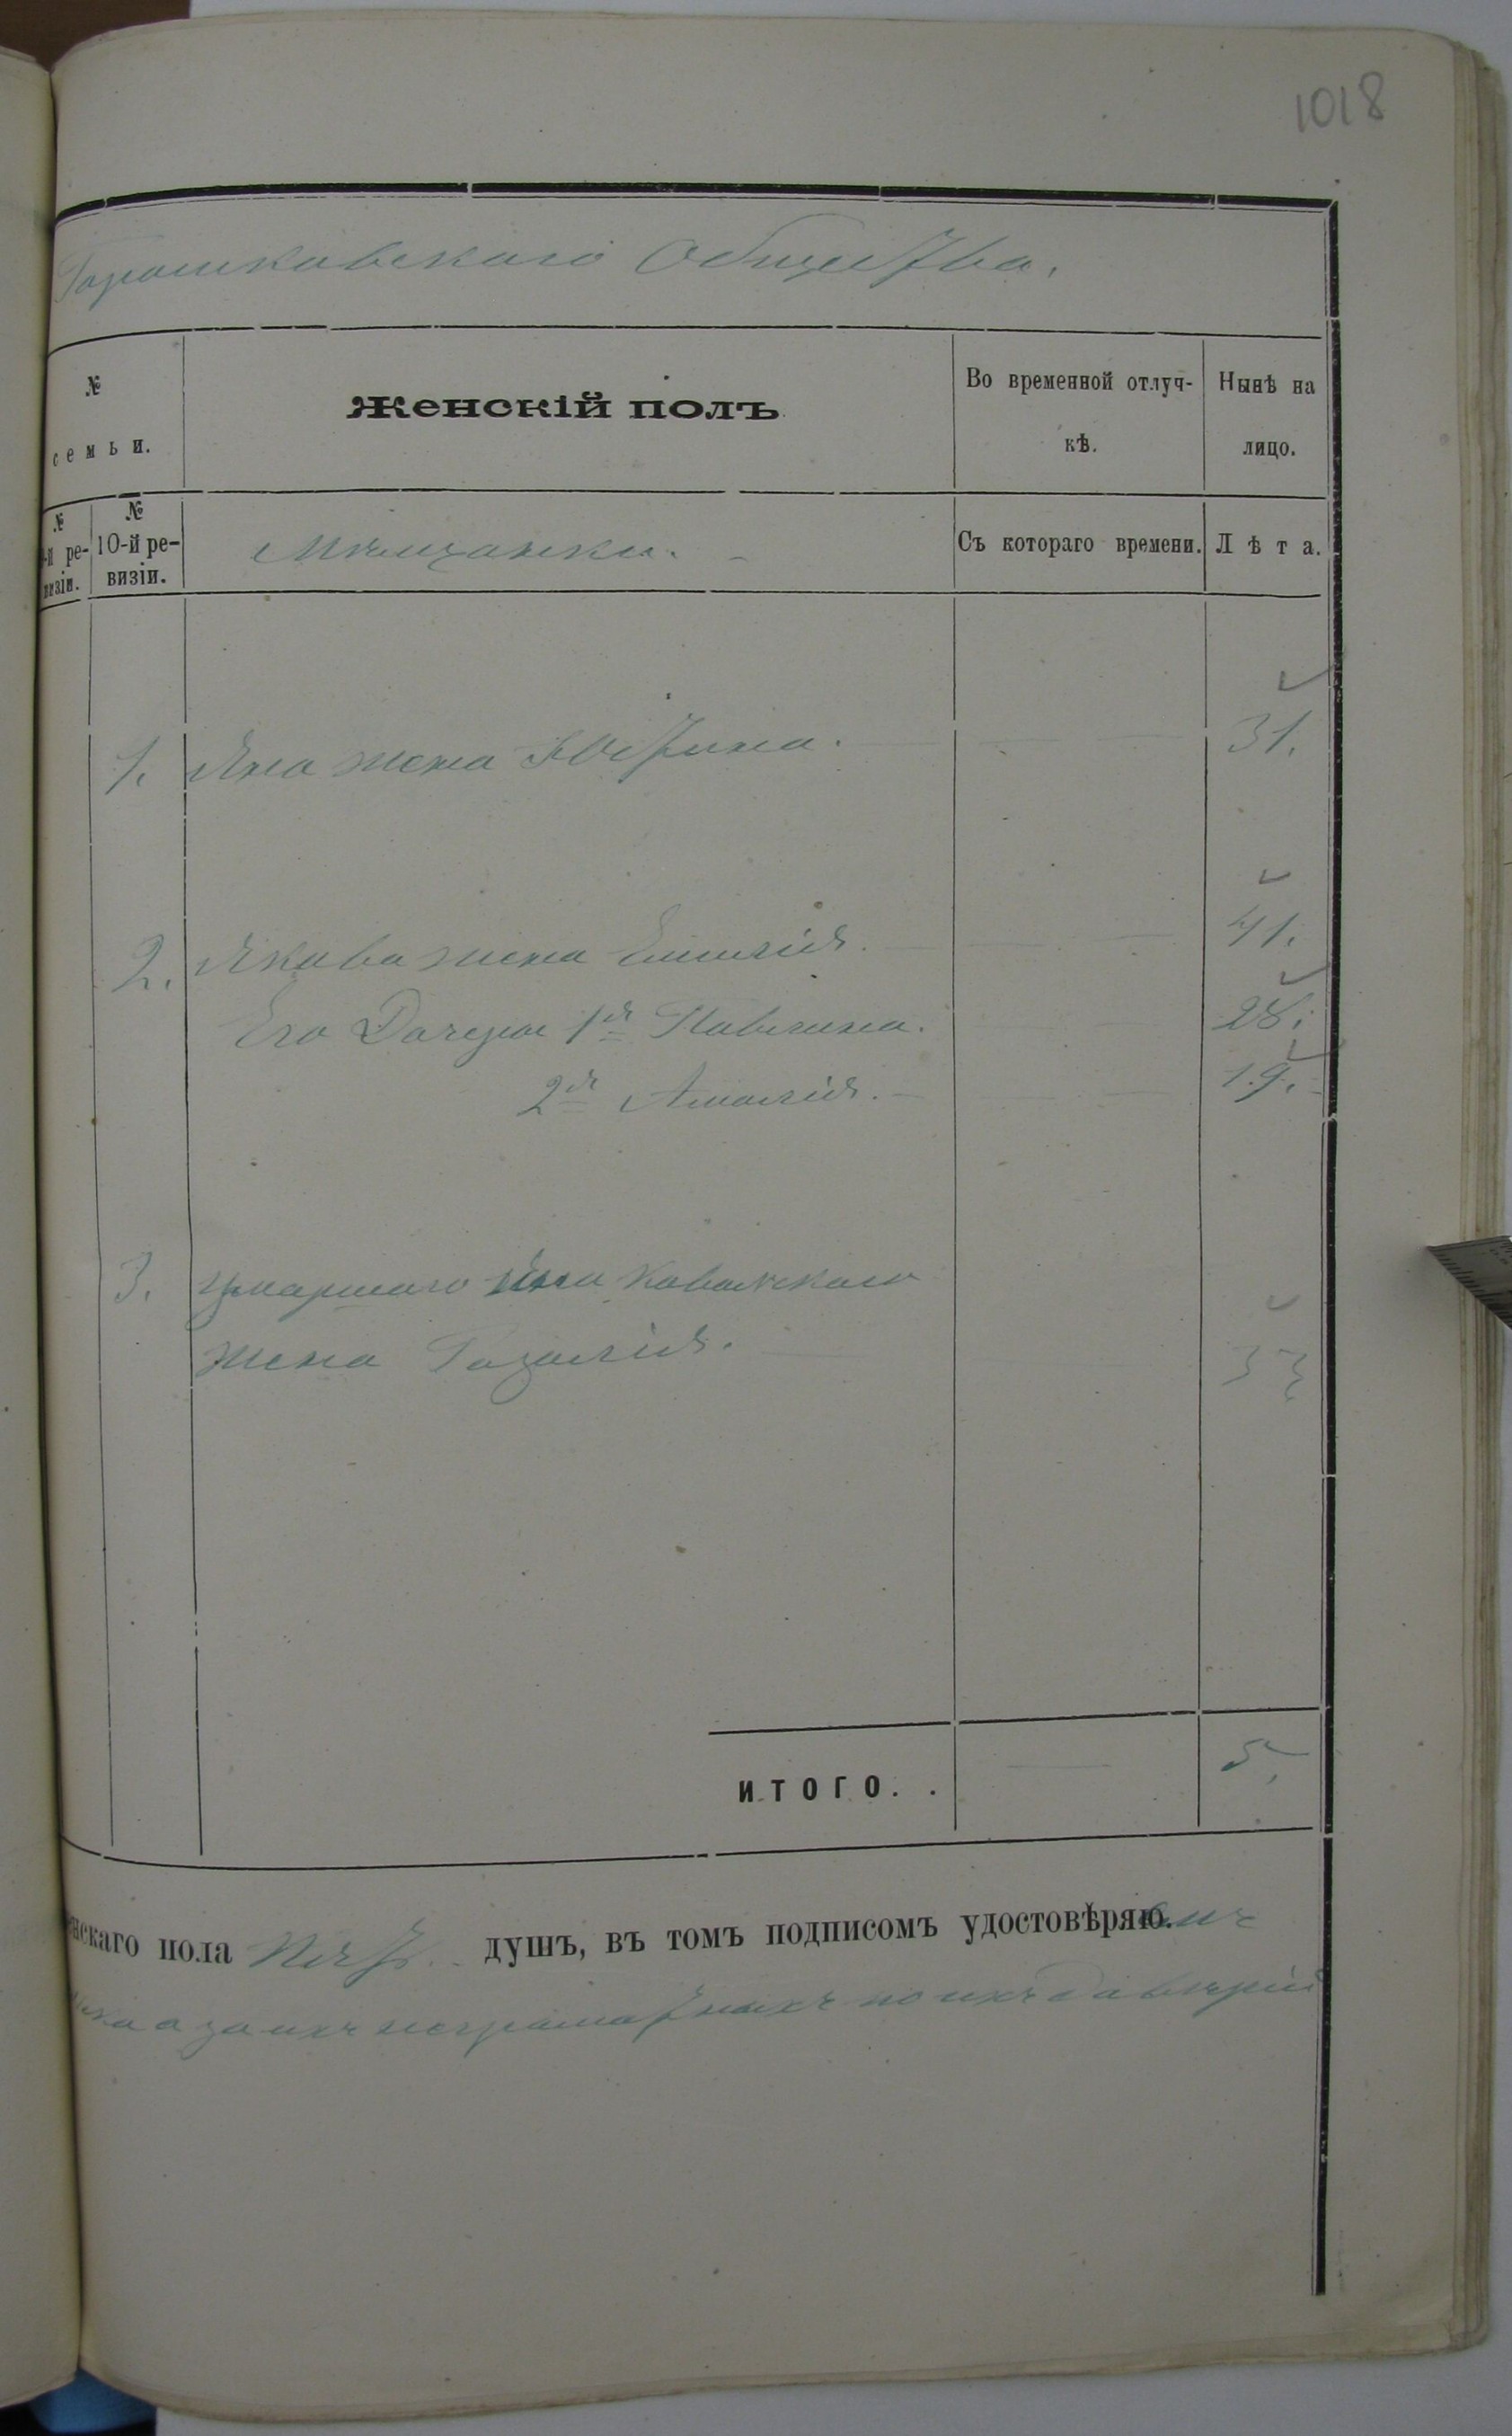 1018
Горошковскаго Общества.
№
семьи.
Женскій полъ
Во временной отлуч-
кѣ.
Нынѣ на
лицо.
№
-й ре-
визіи.
№
10-й ре-
визіи.
Мѣщанки.
Съ котораго времени.
Лѣта.
1. Яна жена Юстина. 31.
2. Якова жена Емилія. 41.
Его Дочери 1я Павлина. 28.
2я Амалія. 19.
3. Умаршаго Яна Ковальскаго
Жена Розалія. 33
ИТОГО. . 5,
енскаго пола Пять душъ, въ томъ подписомъ удостовѣряю.
а за ихъ неграмотныхъ по ихъ довѣрію